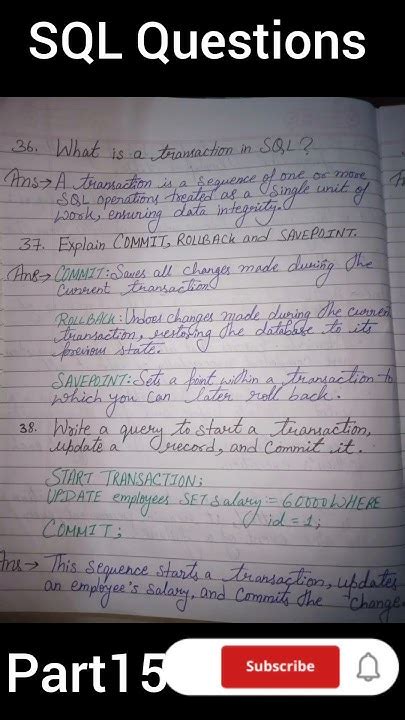 SQL Questions
36. What is a transaction in SQL?
Ans→ A transaction is a sequence of one or more
SQL operations treated as a single unit of
work, ensuring data integrity.
37. Explain COMMIT, ROLLBACK and SAVEPOINT.
Ans→ COMMIT: Saves all changes made during the
current transaction
ROLLBACK: Undoes changes made during the current
transaction, restoring the database to its
previous state.
SAVEPOINT: Sets a point within a transaction to
which you can later roll back.
38. Write a query to start a transaction,
update a record, and commit it.
START TRANSACTION;
UPDATE employees SET salary = 60000 WHERE
id = 1;
COMMIT;
Ans→ This sequence starts a transaction, updates
an employee's salary, and commits the change
Part15
Subscribe